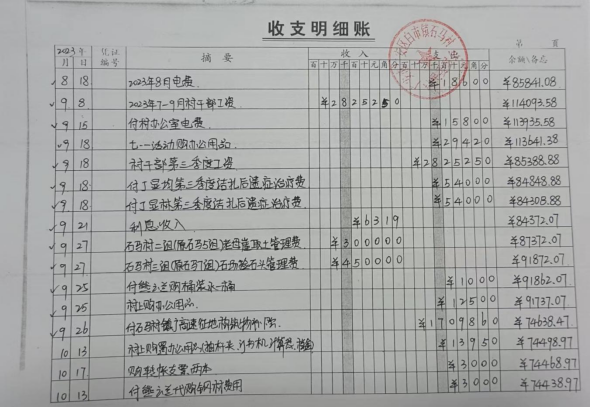 收支明细账
第 页
2023年 凭证编号 摘要 收入 支出 余额\备忘
月 日 百十万千百十元角分 百十万千百十元角分
8 18 2023年8月电费 ¥18600 ¥85841.08
9 8 2023年7-9月村干部工资 ¥2825250 ¥114093.58
9 15 付村办公室电费 ¥15800 ¥113935.58
9 18 七一活动购办公用品 ¥29420 ¥113641.38
9 18 村干部第三季度工资 ¥2825250 ¥85388.88
9 18 付丁显均第三季度结扎后遗症治疗费 ¥54000 ¥84848.88
9 18 付丁显林第三季度结扎后遗症治疗费 ¥54000 ¥84308.88
9 21 利息收入 ¥6319 ¥84372.07
9 27 石马村二组(原石马5组) 取土管理费 ¥300000 ¥87372.07
9 27 石马村三组(原石马7组) 石头管理费 ¥450000 ¥91872.07
9 25 付 桶装水一桶 ¥1000 ¥91862.07
9 25 村上购办公用品 ¥12500 ¥91737.07
9 26 付石马村 广高速征地构筑物 ¥1709860 ¥74638.47
10 13 村上购置办公用品 计算器 ¥13950 ¥74498.97
10 17 购 收支簿两本 ¥3000 ¥74468.97
10 13 付 代购钢材费用 ¥3000 ¥74438.97